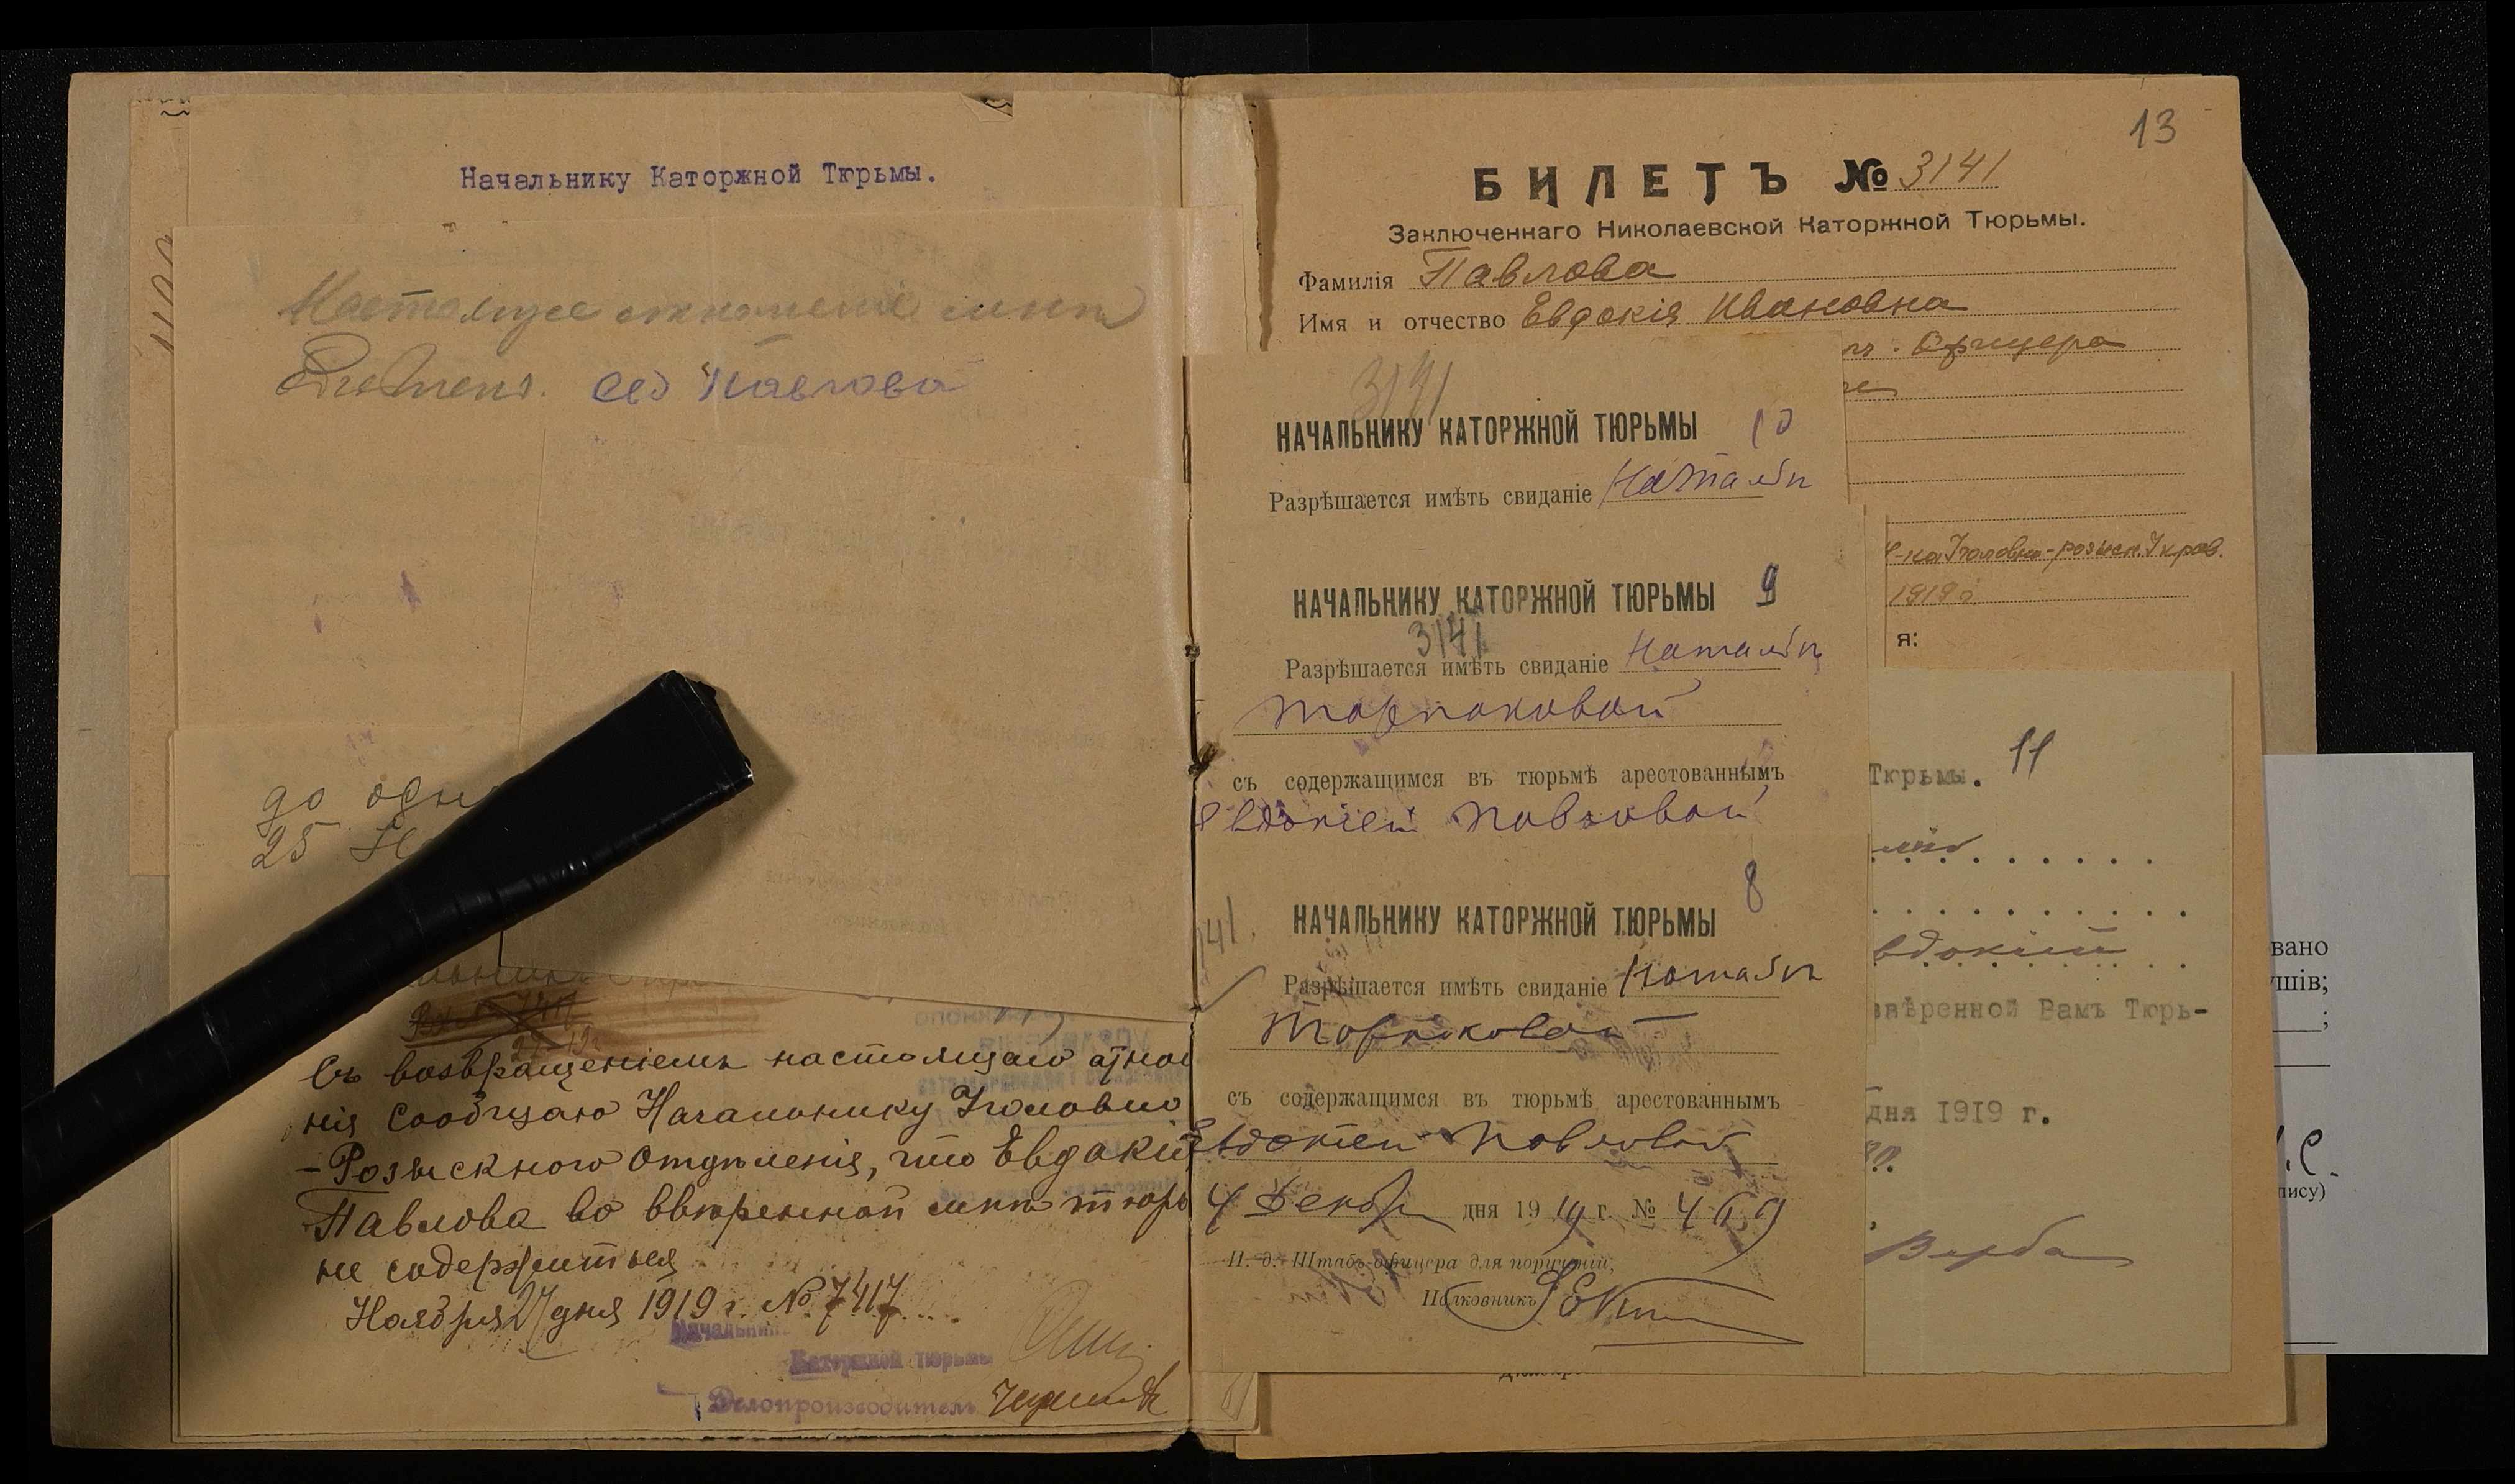 Начальнику Каторжной Тюрьмы.
Настоящее отношеніе мнѣ
объявлено. Евд Павлова
до
25
Съ возвращеніемъ настоящаго отнош
нія сообщаю Начальнику Уголовно
-Розыскного Отдѣленія, что Евдокія
Павлова во ввѣренной мнѣ тюрь
не содержится
Ноября 27 дня 1919 г. № 7417
Начальник
Каторжной тюрьмы
Дѣлопроизводитель
13
БИЛЕТЪ № 3141
Заключеннаго Николаевской Каторжной Тюрьмы.
Фамилія Павлова
Имя и отчество Евдокія Ивановна
Офицера
3141
НАЧАЛЬНИКУ КАТОРЖНОЙ ТЮРЬМЫ 10
Разрѣшается имѣть свиданіе Натальѣ
Н-ка Уголовно-розыск. Управ.
1919 г.
я:
НАЧАЛЬНИКУ КАТОРЖНОЙ ТЮРЬМЫ 9
3141
Разрѣшается имѣть свиданіе Натальѣ
съ содержащимся въ тюрьмѣ арестованнымъ
Евдокіей Павловой
141.
НАЧАЛЬНИКУ КАТОРЖНОЙ ТЮРЬМЫ 8
Разрѣшается имѣть свиданіе Натальѣ
съ содержащимся въ тюрьмѣ арестованнымъ
Евдокіей Павловой
4 Декабр дня 1919 г. № 469
И. д. Штабъ-офицера для порученій,
Полковникъ
Тюрьмы. 11
вдокіей
ввѣренной Вамъ Тюрь-
дня 1919 г.
Верба
вано
ушів;
;
.С.
пису)